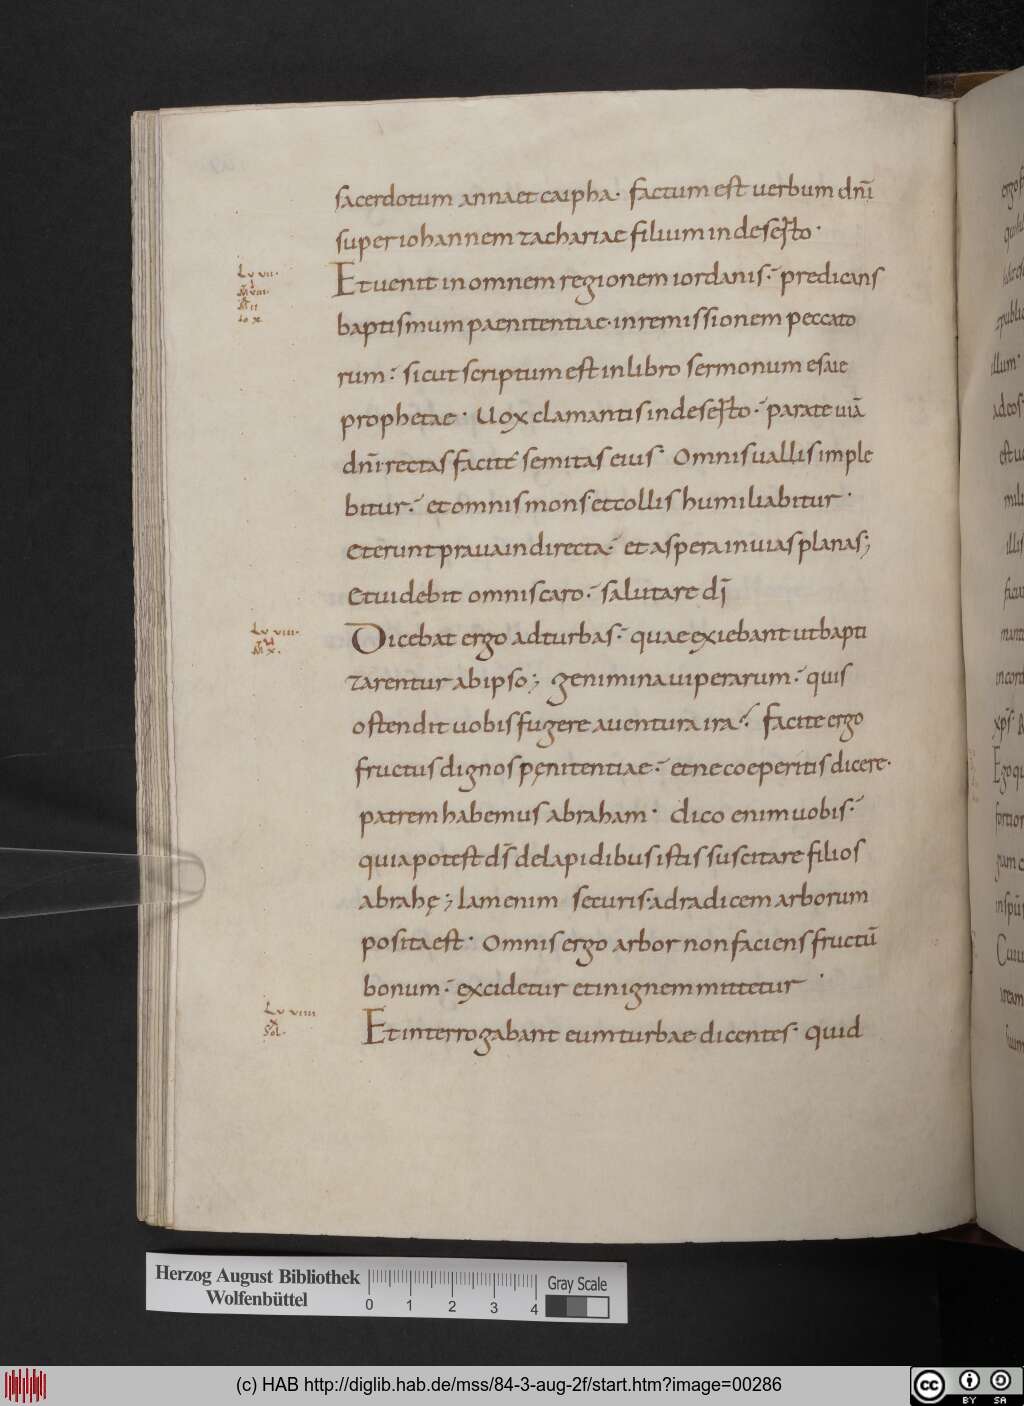 sacerdotum anna et caipha· factum est uerbum dnī
super iohannem zachariae filium in deserto·
Et uenit in omnem regionem iordanis· predicans
baptismum paenitentiae· in remissionem peccato
rum· sicut scriptum est in libro sermonum esaie
prophetae· Uox clamantis in deserto· parate uiā
dnī rectas facite semitas eius· Omnis uallis imple
bitur· et omnis mons et collis humiliabitur·
et erunt praua in directa· et aspera in uias planas;
et uidebit omnis caro· salutare dī
Dicebat ergo ad turbas· quae exiebant ut bapti
zarentur ab ipso; genimina uiperarum· quis
ostendit uobis fugere a uentura ira· facite ergo
fructus dignos pęnitentiae· et ne coeperitis dicere·
patrem habemus abraham· dico enim uobis·
quia potest dś de lapidibus istis suscitare filios
abrahę; Iam enim securis· ad radicem arborum
posita est· Omnis ergo arbor non faciens fructū
bonum· excidetur et in ignem mittetur·
Et interrogabant eum turbae dicentes· quid
Lv vii·
M viii·
Lv viii·
M x·
Lv viiii
Sol·
Herzog August Bibliothek
Wolfenbüttel
0 1 2 3 4
Gray Scale
(c) HAB http://diglib.hab.de/mss/84-3-aug-2f/start.htm?image=00286
cc BY SA